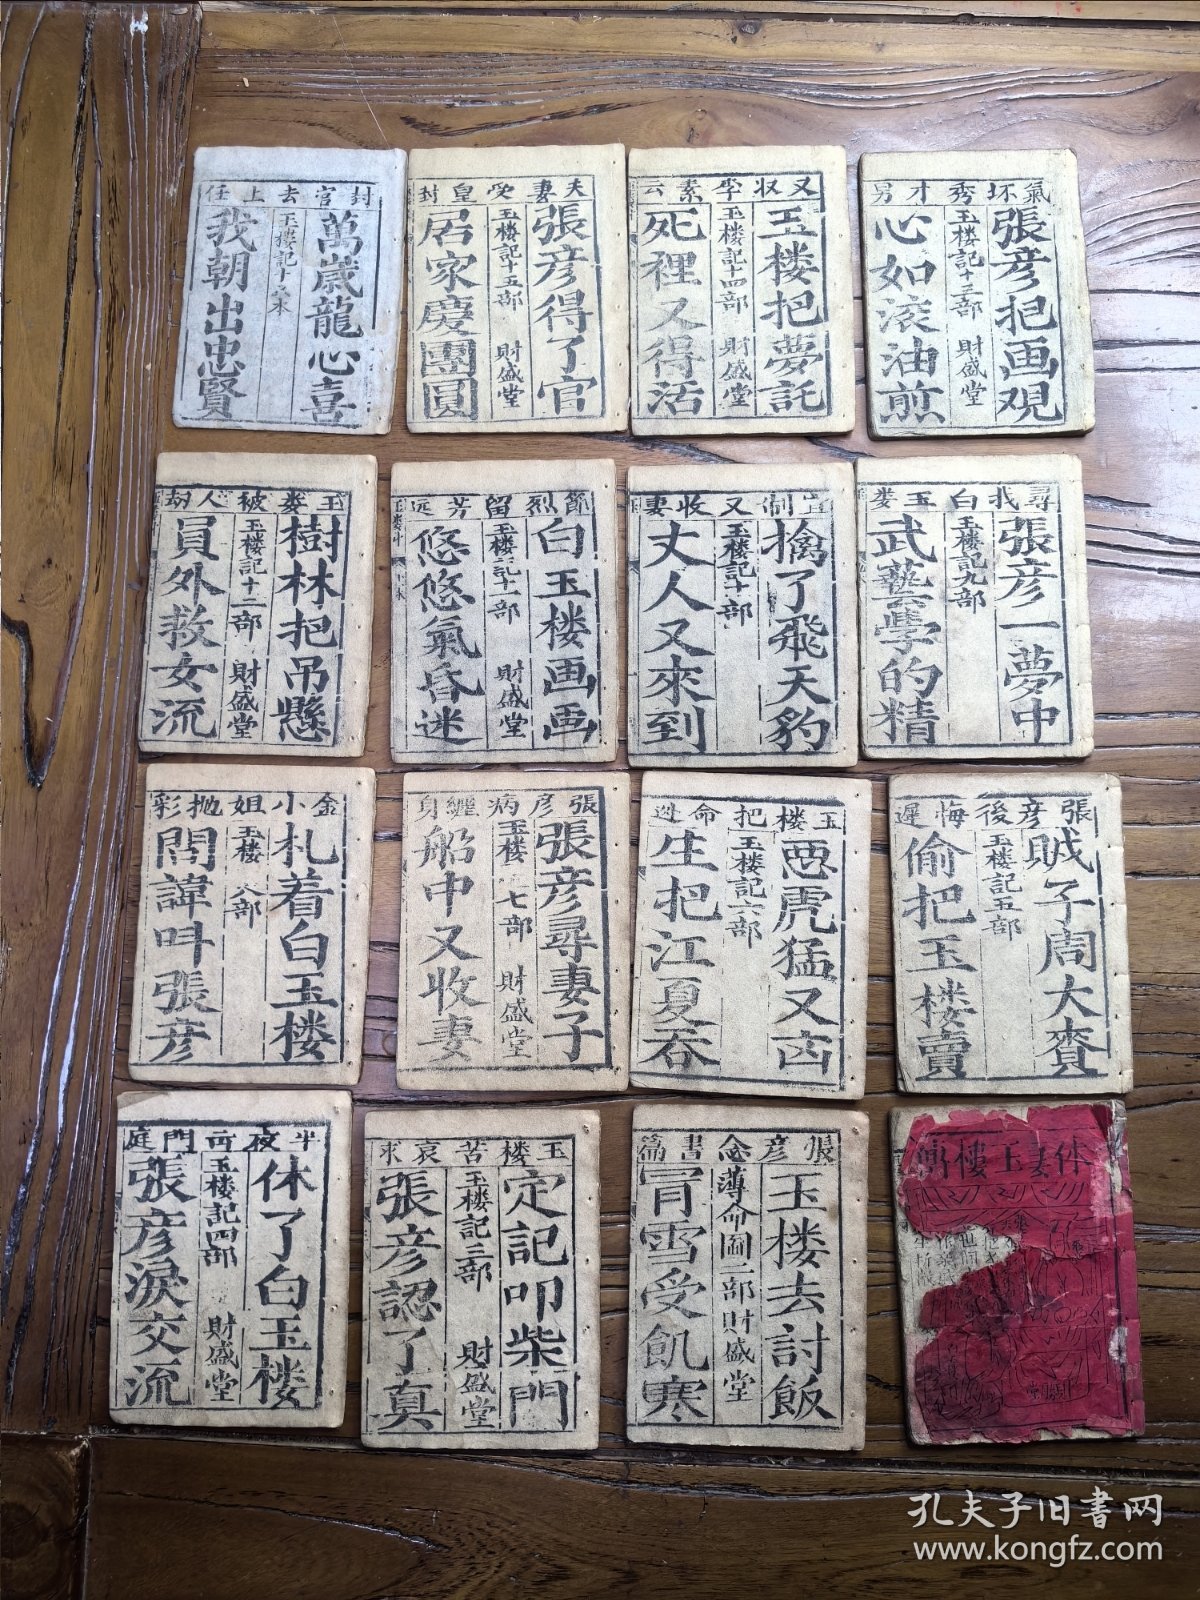 封官去上任
萬歲龍心喜
玉楼記十六本
我朝出忠賢
夫妻受皇封
張彦得了官
玉楼記十五部 財盛堂
居家慶團圓
又収李素云
玉楼把夢託
玉楼記十四部 財盛堂
死裡又得活
氣坏秀才男
張彦把画观
玉楼記十三部 財盛堂
心如滚油煎
玉娄被人劫
樹林把吊懸
玉楼記十二部 財盛堂
員外救女流
節烈留芳远
白玉楼画画
玉楼記十一部 財盛堂
悠悠氣昏迷
制又收妻
擒了飛天豹
玉楼記十部
丈人又來到
尋我白玉娄
張彦一夢中
玉楼記九部
武藝學的精
金小姐抛彩
札着白玉楼
玉楼 八部
問諱叫張彦
張彦病纏身
張彦尋妻子
玉楼 七部 財盛堂
船中又收妻
玉楼把命逃
惡虎猛又凶
玉楼記六部
生把江夏吞
張彦後悔遲
賊子周大賚
玉楼記五部
偷把玉楼賣
半夜可門庭
休了白玉楼
玉楼記四部 財盛堂
張彦淚交流
玉楼苦哀求
定記叩柴門
玉楼記三部 財盛堂
張彦認了真
張彦念書篇
玉楼去討飯
薄命圖一部財盛堂
冐雪受飢寒
休妻玉樓
孔夫子旧書网
www.kongfz.com